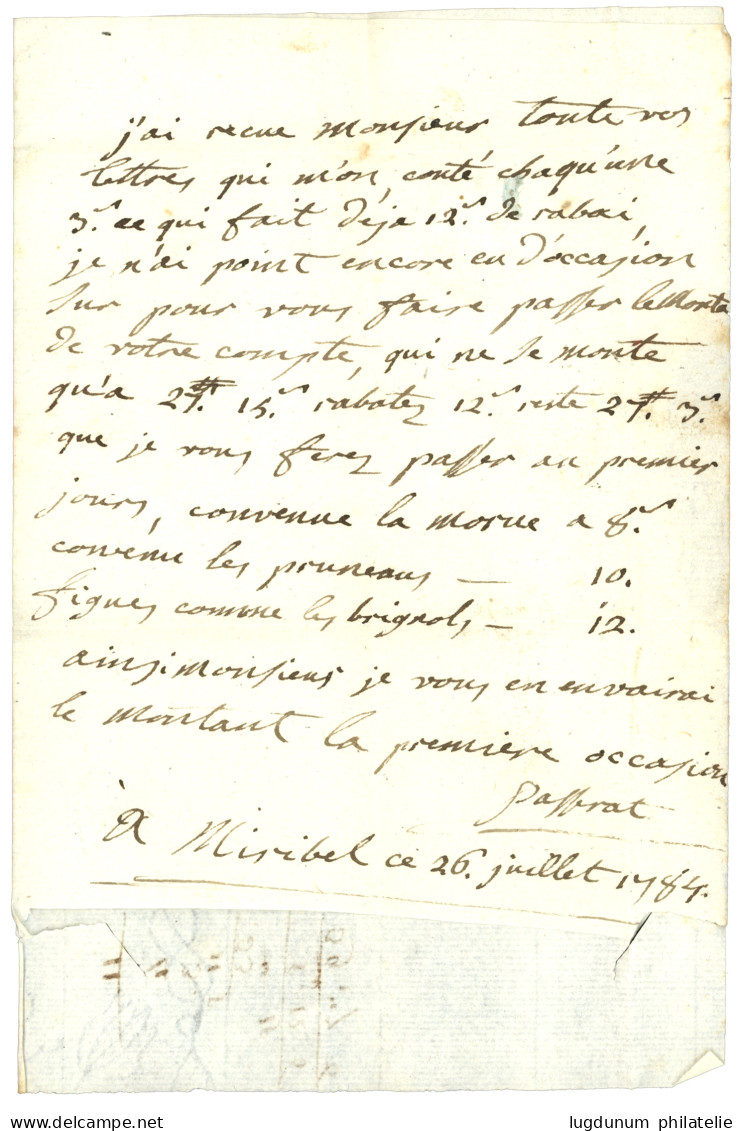 j'ai recue monsieur toute vos
lettres qui m'on couté chaqu'une
3.s ce qui fait déja 12.s de rabai
je n'ai point encore eu d'occasion
sur pour vous faire passer le monta
de votre compte, qui ne se monte
qu'a 27.tt 15.s rabatez 12.s reste 27.tt 3.s
que je vous ferez passer au premier
jours, convenue la morue a 8.s
convenu les pruneaus — 10.
figues comme les brignols — 12.
ainsi monsieur je vous en envairai
le montant la première occasion
Passerat
À Miribel ce 26. juillet 1784.
lugdunum philatelie